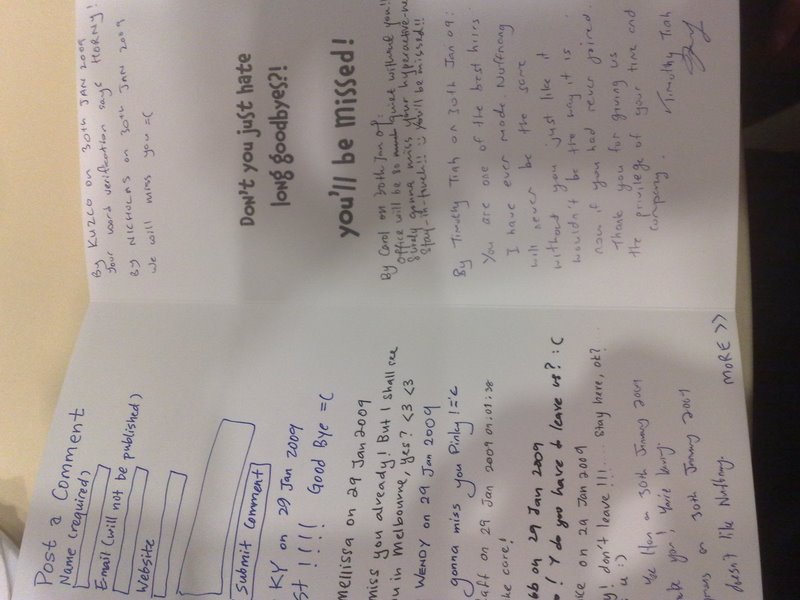 Post a Comment
Name (required)
Email (will not be published)
Website
Submit Comment
KY on 29 Jan 2009
!!!! Good Bye =(
mellissa on 29 Jan 2009
miss you already! But I shall see
in Melbourne, yes? <3 <3
WENDY on 29 Jan 2009
gonna miss you Pinky
on 29 Jan 2009 09:01:38
care!
on 29 Jan 2009
! Y do you have to leave us? :(
on 29 Jan 2009
! don't leave !!!! Stay here, ok?
u :)
on 30th January 2009
you!
on 30th January 2009
doesn't like Nuffnang.
MORE >>
By KUZCO on 30th JAN 2009
Your word verification says HORNY!
By NICHOLAS on 30th JAN 2009
We will miss you =(
Don't you just hate
long goodbyes?!
you'll be missed!
By Carol on 30th Jan 09:
Office will be so quiet without you!!
gonna miss your hyperactive-ness
Stay-in-touch!! :) You'll be missed!!
By Timothy Tiah on 30th Jan 09:
You are one of the best hires
I have ever made. Nuffnang
will never be the same
without you just like it
wouldn't be the way it is
now if you had never joined.
Thank you for giving us
the privilege of your time and
company.
Timothy Tiah